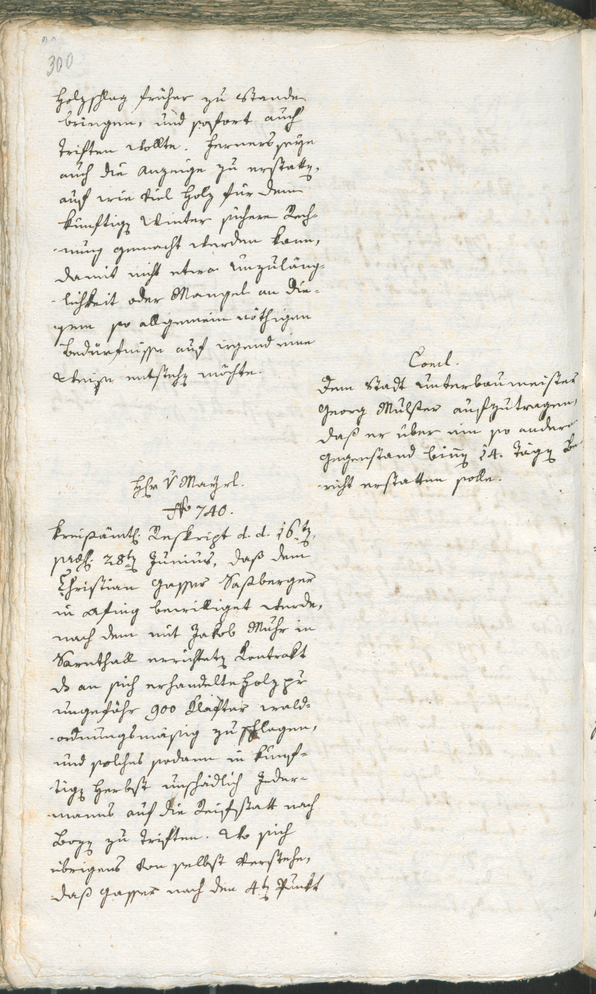 300
Holzschlag früher zu Stande
bringen, und sofort auch
triften wollte. Ferners seye
auch die Anzeige zu erstatten,
auf wie viel Holz für dem
künftigen Winter sichere Rech-
nung gemacht werden kann,
damit nicht etwa Unzuläng-
lichkeit oder Mangel an die-
sem so allgemein nöthigen
Bedürfnisse auf irgend eine
Weise entstehen möchte.
Concl.
Dem Stadt Unterbaumeister
Georg Mülster aufzutragen,
daß er über ein so andern
Gegenstand binnen 14. Tägen Be-
richt erstatten solle.
Hr V Mayrl.
No 740.
Kreisämtl. Reskript d. d. 16ten,
praes. 28ten Junius, daß dem
Christian Gasser Saßberger
in Afing bewilliget werde,
nach dem mit Jakob Muhr in
Sarnthall errichteten Kontrakt
das an sich erhandelte Holz pr
ungefähr 900 Klafter wald-
ordnungsmäsig zu schlagen,
und solches sodann in künf-
tigen Herbst unschädlich Jeder-
manns auf die Reifstatt nach
Bozen zu triften. Wo sich
übrigens von selbst verstehe,
daß Gasser nach den 4ten Punkt